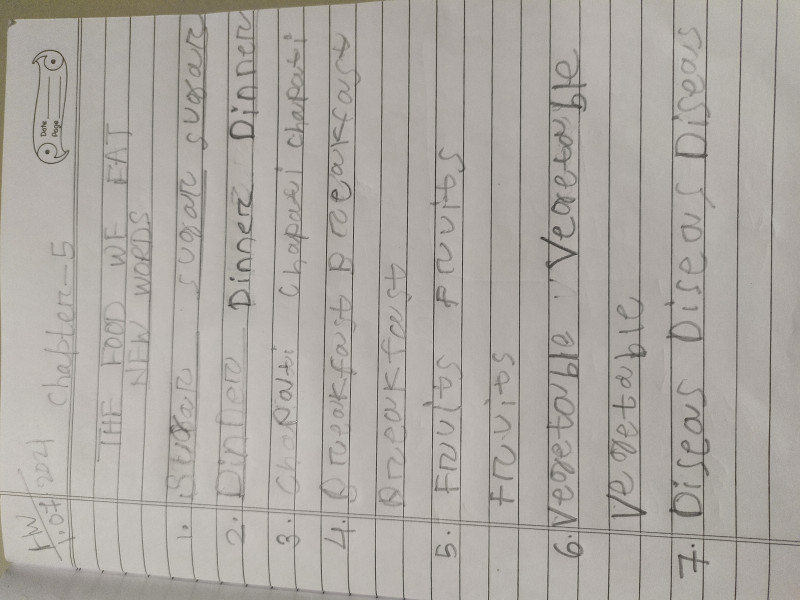 Date
Page
HW
1.07/2021
Chapter-5
THE FOOD WE EAT
NEW WORDS
1. Sugar sugar sugar
2. Dinner Dinner Dinner
3. Chapati Chapati Chapati
4. Breakfast Breakfast
Breakfast
5. Fruits Fruits
Fruits
6. Vegetable Vegetable
Vegetable
7. Diseas Diseas Diseas